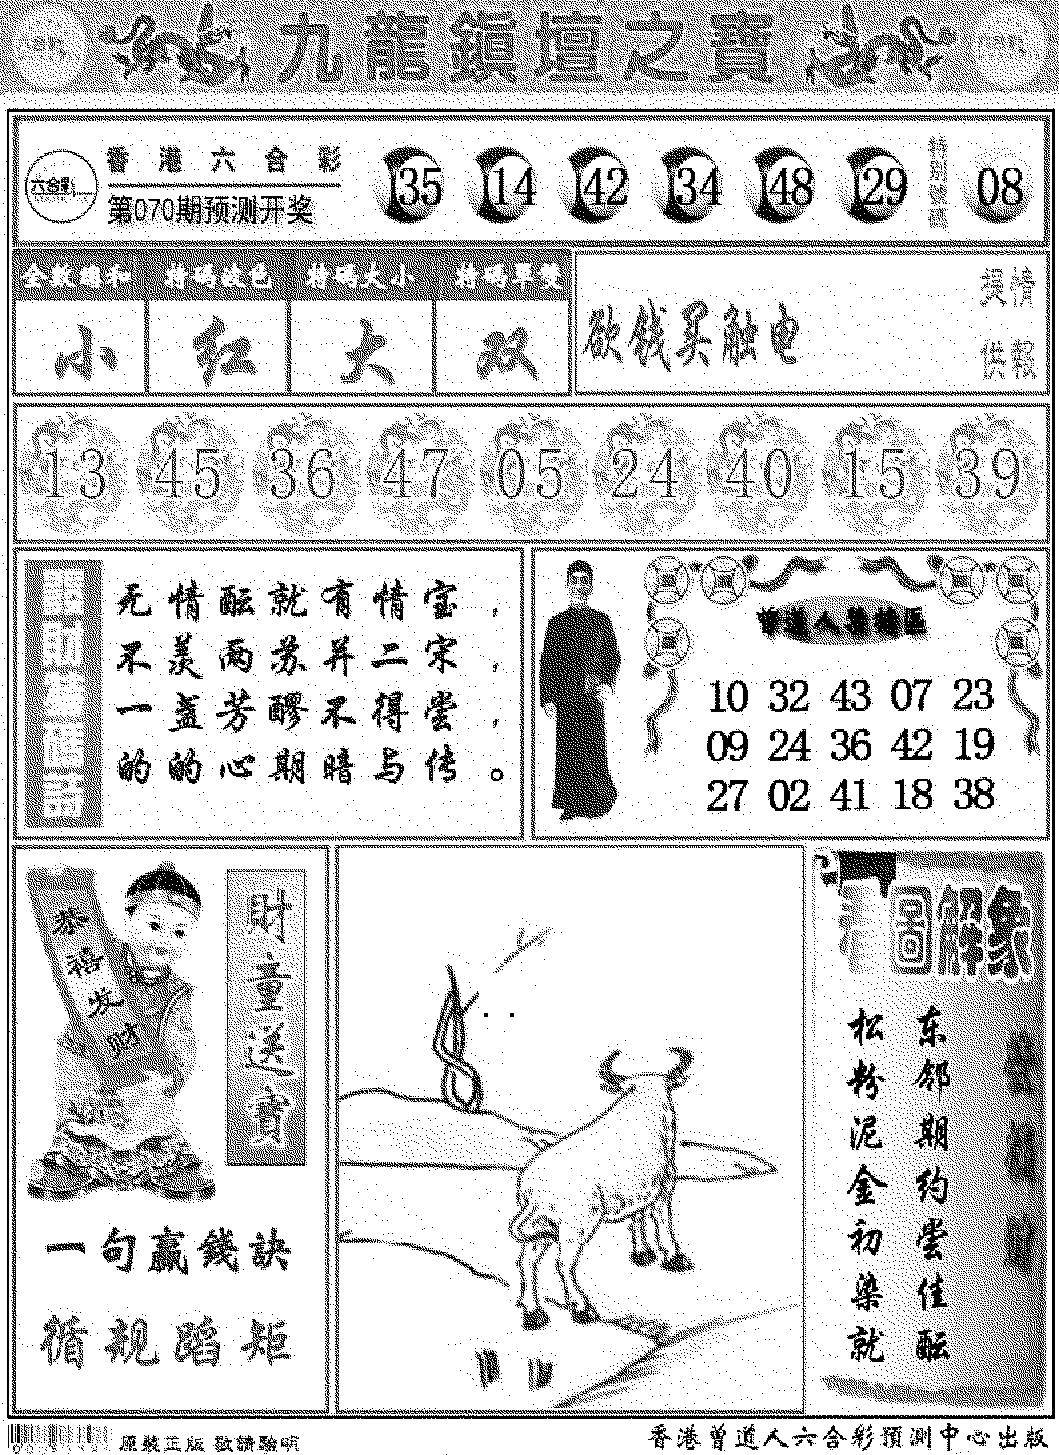 九龍鎮壇之寶
香港六合彩
六合彩
第070期预测开奖
35 14 42 34 48 29
特别號碼
08
全数總和 特码波色 特码大小 特码單雙
小 红 大 双
欲钱买触电
13 45 36 47 05 24 40 15 39
无情酝就有情宝，
不羡两苏并二宋，
一盏芳醪不得尝，
的的心期暗与传。
10 32 43 07 23
09 24 36 42 19
27 02 41 18 38
恭禧发财
財童送寶
一句贏錢訣
循规蹈矩
圖解象
东邻期约尝佳酝
松粉泥金初染就
原裝正版 敬請驗明
香港曾道人六合彩預測中心出版